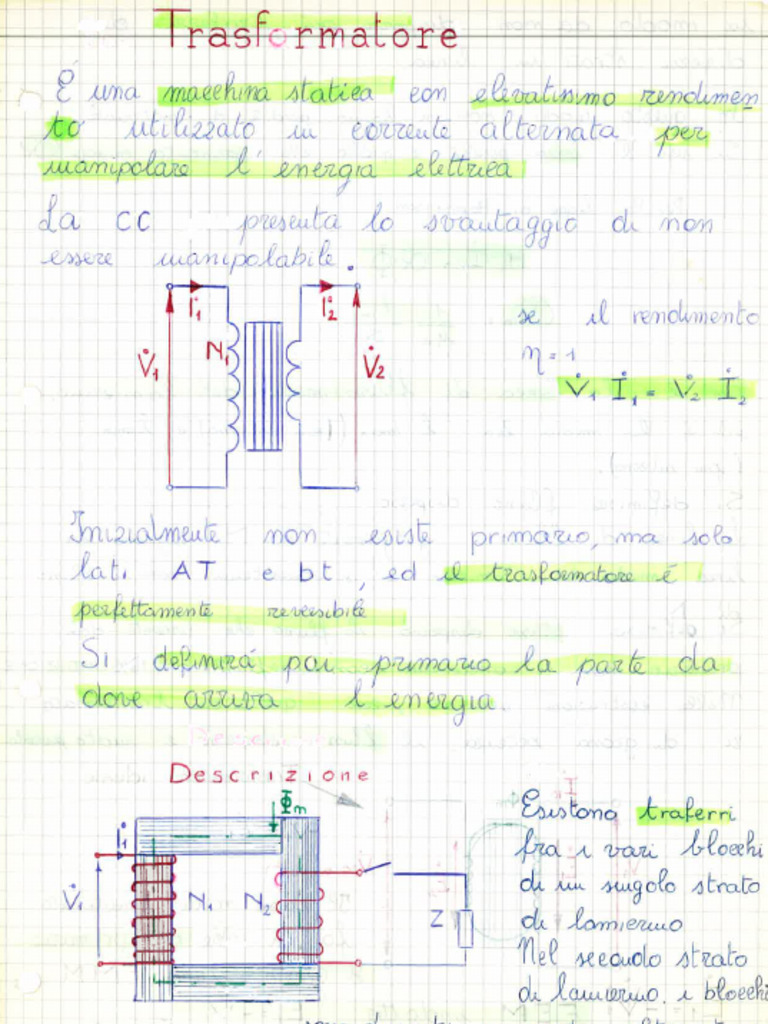 Trasformatore
É una macchina statica con elevatissimo rendimen
to utilizzato in corrente alternata per
manipolare l'energia elettrica
La CC presenta lo svantaggio di non
essere manipolabile.
İ1 İ2
N1
V̇1 V̇2
se il rendimento
η = 1
V̇1 İ1 = V̇2 İ2
Inizialmente non esiste primario, ma solo
lati AT e bt, ed il trasformatore é
perfettamente reversibile
Si definirá poi primario la parte da
dove arriva l'energia.
Descrizione
Φm
İ1
V̇1 N1 N2 Z
Esistono traferri
fra i vari blocchi
di un singolo strato
di lamierino
Nel secondo strato
di lamierino. i blocchi